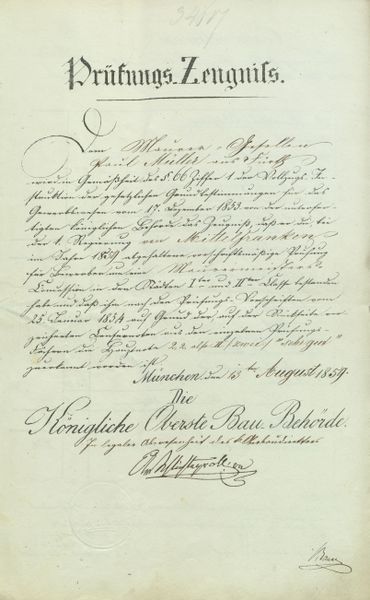 Prüfungs-Zeugniss.
Dem Maurer-Gesellen
Paul Müller aus Fürth
wird in Gemäßheit des § 66 Ziffer 1 der Vollzugs-In-
struktion der gesetzlichen Grundbestimmungen für das
Gewerbswesen vom 17. Dezember 1853 von der unterfer-
tigten königlichen Behörde das Zeugniß, daß er die bei
der k. Regierung von Mittelfranken
im Jahre 1859 abgehaltene vorschriftsmäßige Prüfung
für Bewerber um eine Maurermeisters-
Concession in den Städten I ter und II ter Klasse bestanden
habe und daß ihm nach den Prüfungs-Vorschriften vom
25 Januar 1854 auf Grund der auf der Rückseite ver-
zeichneten Censurnoten aus den einzelnen Prüfungs-
Fächern die Hauptnote "sehr gut"
zuerkannt worden ist.
München den August 1859.
Die
Königliche Oberste Bau-Behörde.
In legaler Abwesenheit des k. Oberbaudirektors